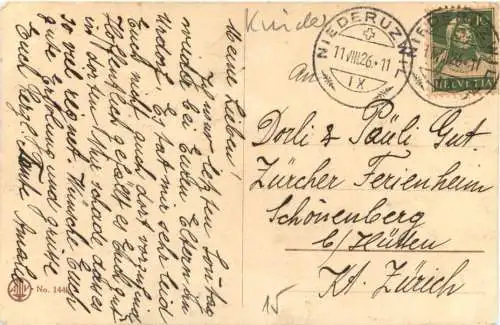 Meine Lieben!
War letzten Sonntag
wieder bei Euren Eltern in
Urdorf. Es tat mir sehr leid
Euch nicht auch dort
Hoffentlich gefällt es Euch gut
in dorten. Nur schade das es
so viel regnet. Wünsche Euch
gute Erholung und grüsse
Euch Tante Amalie
No. 144
Kinder
NIEDERUZWIL
11.VIII.26.-11
IX
HELVETIA
An
Dorli & Päuli Gut.
Zürcher Ferienheim
Schönenberg
b/Hütten
Kt. Zürich
15